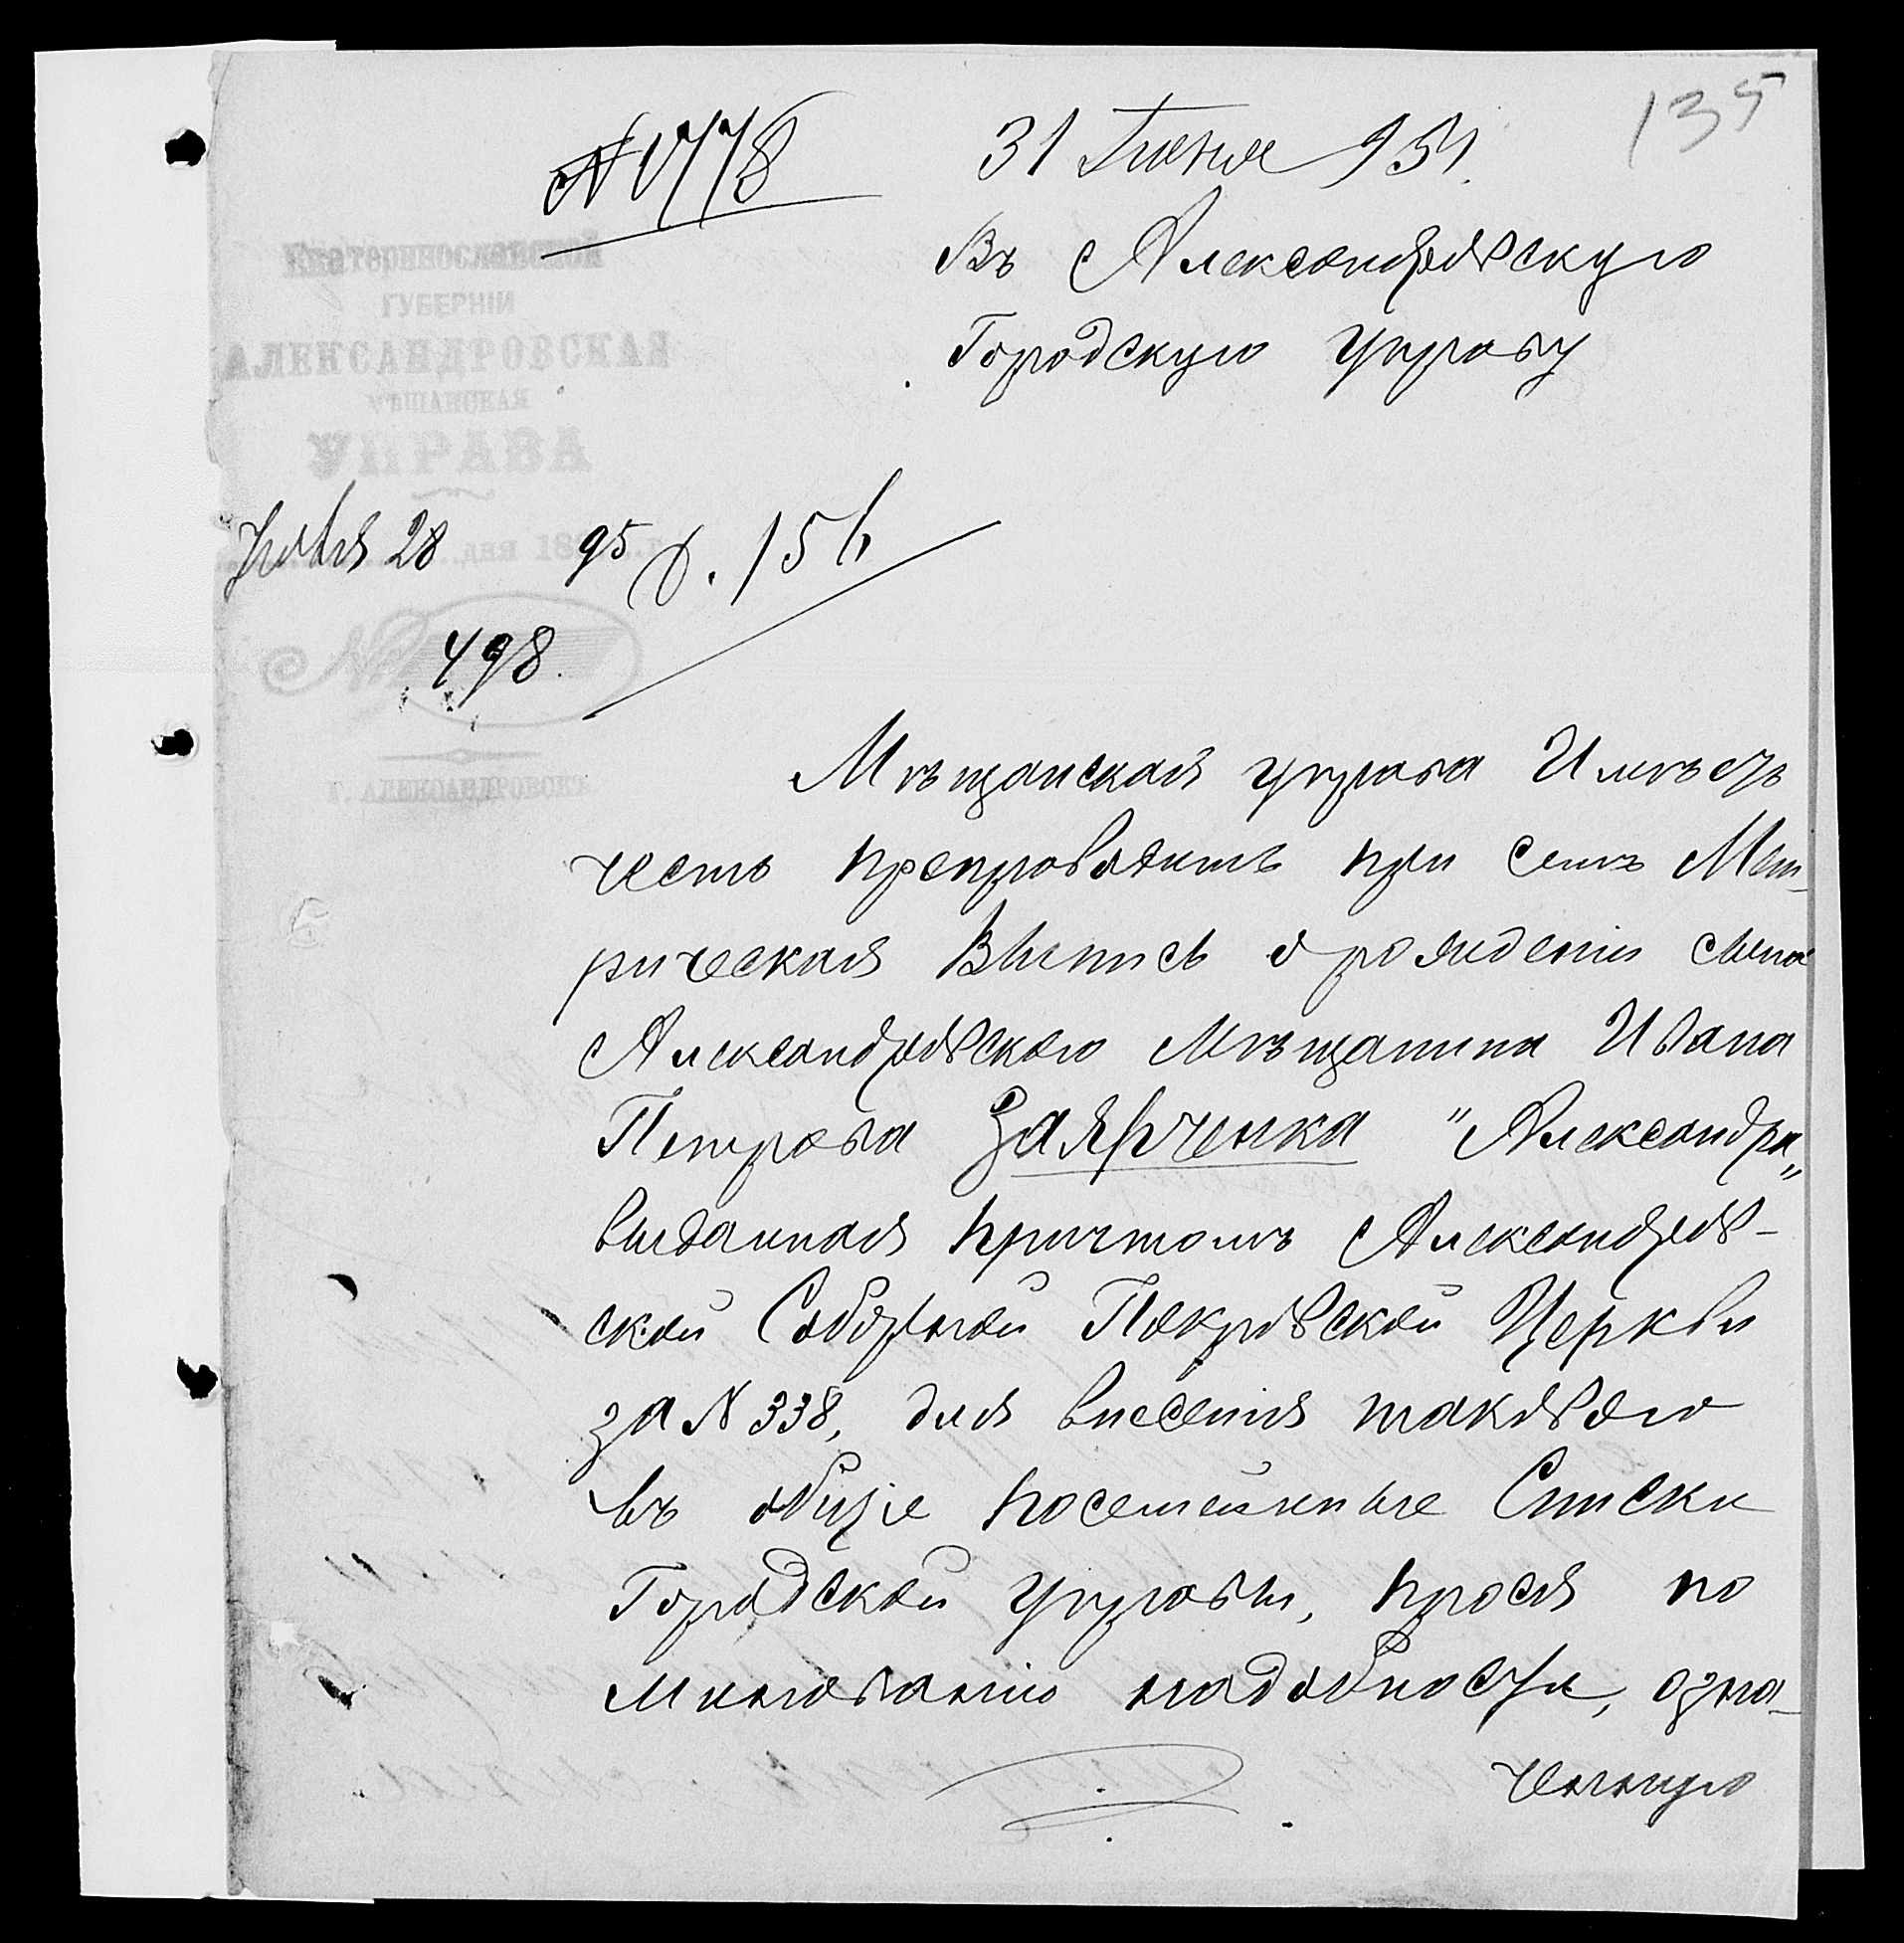 135
31 Июля 95 г.
Въ Александровскую
Городскую Управу
Екатеринославской
ГУБЕРНІИ
АЛЕКСАНДРОВСКАЯ
МѢЩАНСКАЯ
УПРАВА
Июля 28 дня 1895 г.
№ 498.
Г. АЛЕКСАНДРОВСКЪ
Мѣщанская управа Имѣетъ
честь препроводить при семъ Мет-
рическая Выпись о рожденіи сына
Александровскаго Мѣщанина Ивана
Петрова Заярченка "Александра"
выданная причтомъ Александров-
ской Соборной Покровской Церкви
за № 338, для внесенія таковаго
въ общіе посемейные Списки
Городской управы, прося по
минованію надобности, озна-
ченную